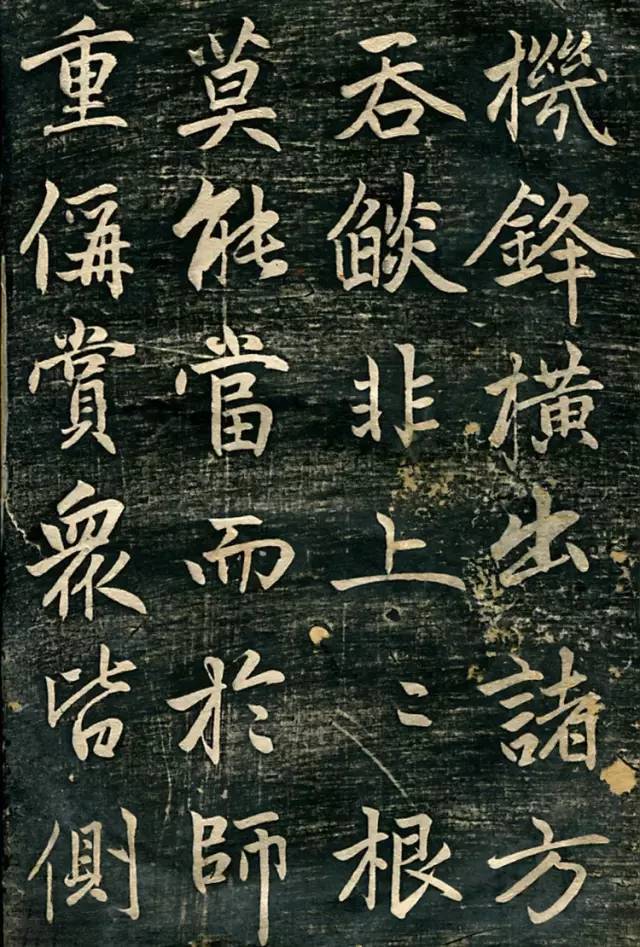 機鋒橫出諸方
吞餤非上〻根
莫能當而於師
重偁賞衆皆側